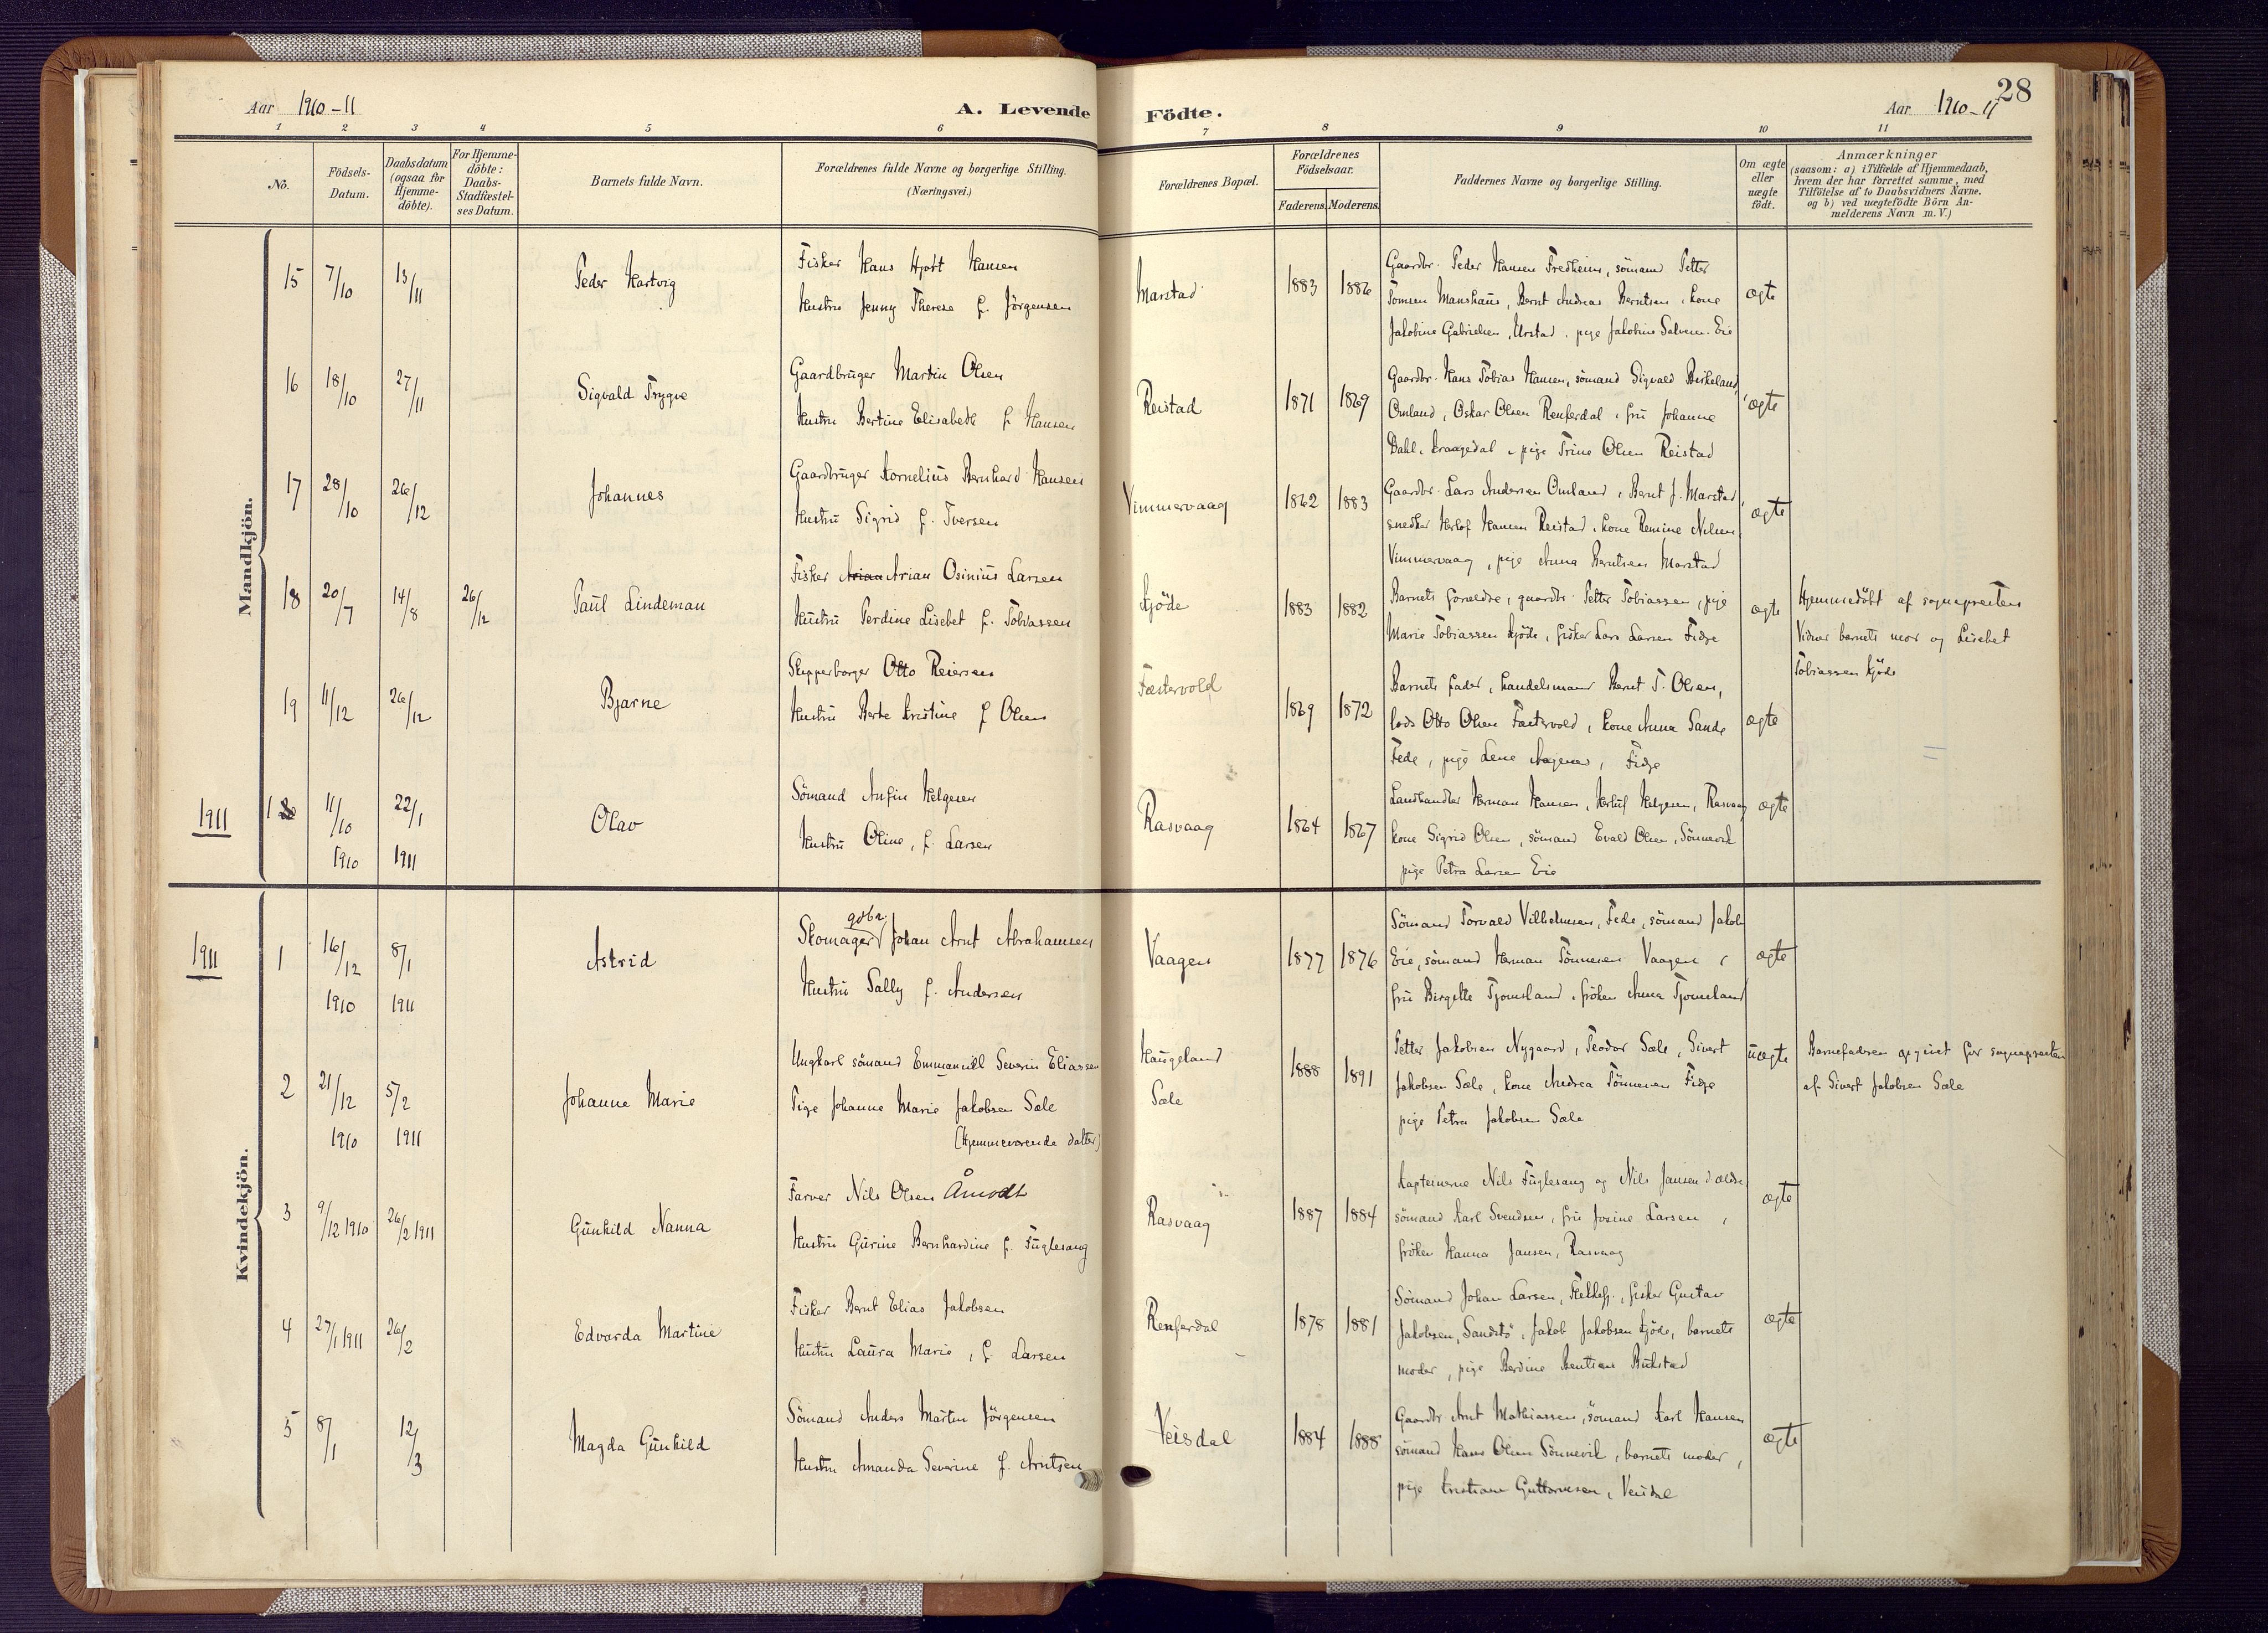 28
Aar 1910-11
A. Levende
Födte.
Aar 1910-11
1 2 3 4 5 6 7 8 9 10 11
No.
Födsels-
Datum.
Daabsdatum
(ogsaa for
Hjemme-
döbte).
For Hjemme-
döbte:
Daabs-
Stadfæstel-
ses Datum.
Barnets fulde Navn.
Forældrenes fulde Navne og borgerlige Stilling.
(Næringsvei.)
Forældrenes Bopæl.
Forældrenes
Födselsaar.
Faderens. Moderens.
Faddernes Navne og borgerlige Stilling.
Om ægte
eller
uægte
födt.
Anmærkninger
(saasom: a) i Tilfælde af Hjemmedaab,
hvem der har forrettet samme, med
Tilföielse af to Daabsvidners Navne.
og b) ved uægtefödte Börn An-
melderens Navn m. V.)
Mandkjön.
15 7/10 13/11 Peder Hartvig
Fisker Hans Hjort Hansen
Hustru Jenny Therese f. Jörgensen
Marstad 1883 1886
Gaardbr. Peder Hansen Fredheim, sömand Petter
Tömsen Manshaus, Bernt Andreas Berntsen, kone
Jakobine Gabrielsen, Urstad, pige Jakobine Salvesen Eie
ægte
16 18/10 27/11 Sigvald Trygve
Gaardbruger Martin Olsen
Hustru Bertine Elisabeth f. Hansen
Reistad 1871 1869
Gaardbr. Hans Tobias Hansen, sömand Sigvald Birkeland,
Omland, Oskar Olsen Renferdal, fru Johanne
Dahl, Kraagedal, pige Trine Olsen Reistad
ægte
17 28/10 26/12 Johannes
Gaardbruger Kornelius Bernhard Hansen
Hustru Sigrid f. Iversen
Vimmervaag 1862 1883
Gaardbr. Lars Andersen Omland, Bernt J. Marstad,
snedker Herlof Hansen Reistad, kone Remine Nilsen
Vimmervaag, pige Anna Berntsen Marstad
ægte
18 20/7 14/8 26/12 Paul Lindeman
Fisker Arian Arian Osinius Larsen
Hustru Perdine Lisebet f. Tobiassen
Kjöde 1883 1882
Barnets forældre, gaardbr. Petter Tobiassen, pige
Marie Tobiassen Kjöde, fisker Lars Larsen Fidje
ægte
Hjemmedöbt af sognepresten
Vidner barnets mor og Lisebet
Tobiassen Kjöde
19 11/12 26/12 Bjarne
Skipperborger Otto Reiersen
Hustru Berte Kristine f. Olsen
Fæstervold 1869 1872
Barnets fader, handelsmand Bernt T. Olsen,
lods Otto Olsen Fæstervold, kone Anna Sande
Fede, pige Lene, Fidje
ægte
1911
1 11/10 1910 22/1 1911 Olav
Sömand Anfin Helgesen
Hustru Oline, f. Larsen
Rasvaag 1864 1867
Landhandler Herman Hansen, Herluf Helgesen, Rasvaag
kone Sigrid Olsen, sömand Evald Olsen, Sönnevik
pige Petra Larsen Eie
ægte
Kvindekjön.
1911
1 16/12 1910 8/1 1911 Astrid
gdbr.
Skomager Johan Arnt Abrahamsen
Hustru Sally f. Andersen
Vaagen 1877 1876
Sömand Torvald Vilhelmsen, Fede, sömand Jakob
Eie, sömand Herman Tönnesen Vaagen,
fru Birgitte Tjomsland, fröken Anna Tjomsland
ægte
2 21/12 1910 5/2 1911 Johanne Marie
Ungkarl sömand Emmanuel Severin Eliassen
Pige Johanne Marie Jakobsen Sæle
(Hjemmeværende datter)
Haugeland
Sæle
1888 1891
Petter Jakobsen Nygaard, Teodor Sæle, Sivert
Jakobsen Sæle, kone Andrea Tönnesen Fidje
pige Petra Jakobsen Sæle
uægte
Barnefaderen opgivet for sognepresten
af Sivert Jakobsen Sæle
3 9/12 1910 26/2 1911 Gunhild Nanna
Farver Nils Olsen Åmodt
Hustru Gurine Bernhardine f. Fuglesang
Rasvaag 1887 1884
Kapteinerne Nils Fuglesang og Nils Jansen d ældre,
sömand Karl Svendsen, fru Josine Larsen,
fröken Hanna Jansen, Rasvaag
ægte
4 27/1 1911 26/2 Edvarda Martine
Fisker Bernt Elias Jakobsen
Hustru Laura Marie, f. Larsen
Renferdal 1878 1881
Sömand Johan Larsen, Flekkefj., fisker Gustav
Jakobsen, Sandstö, Jakob Jakobsen Kjöde, barnets
moder, pige Berdine Bentsen Bukstad
ægte
5 8/1 12/3 Magda Gunhild
Sömand Anders Martin Jörgensen
Hustru Amanda Severine f. Arntsen
Veisdal 1884 1888
Gaardbr. Arnt Mathiassen, sömand Karl Hansen
sömand Hans Olsen Sönnevik, barnets moder,
pige Kristiane Guttormsen, Veisdal
ægte